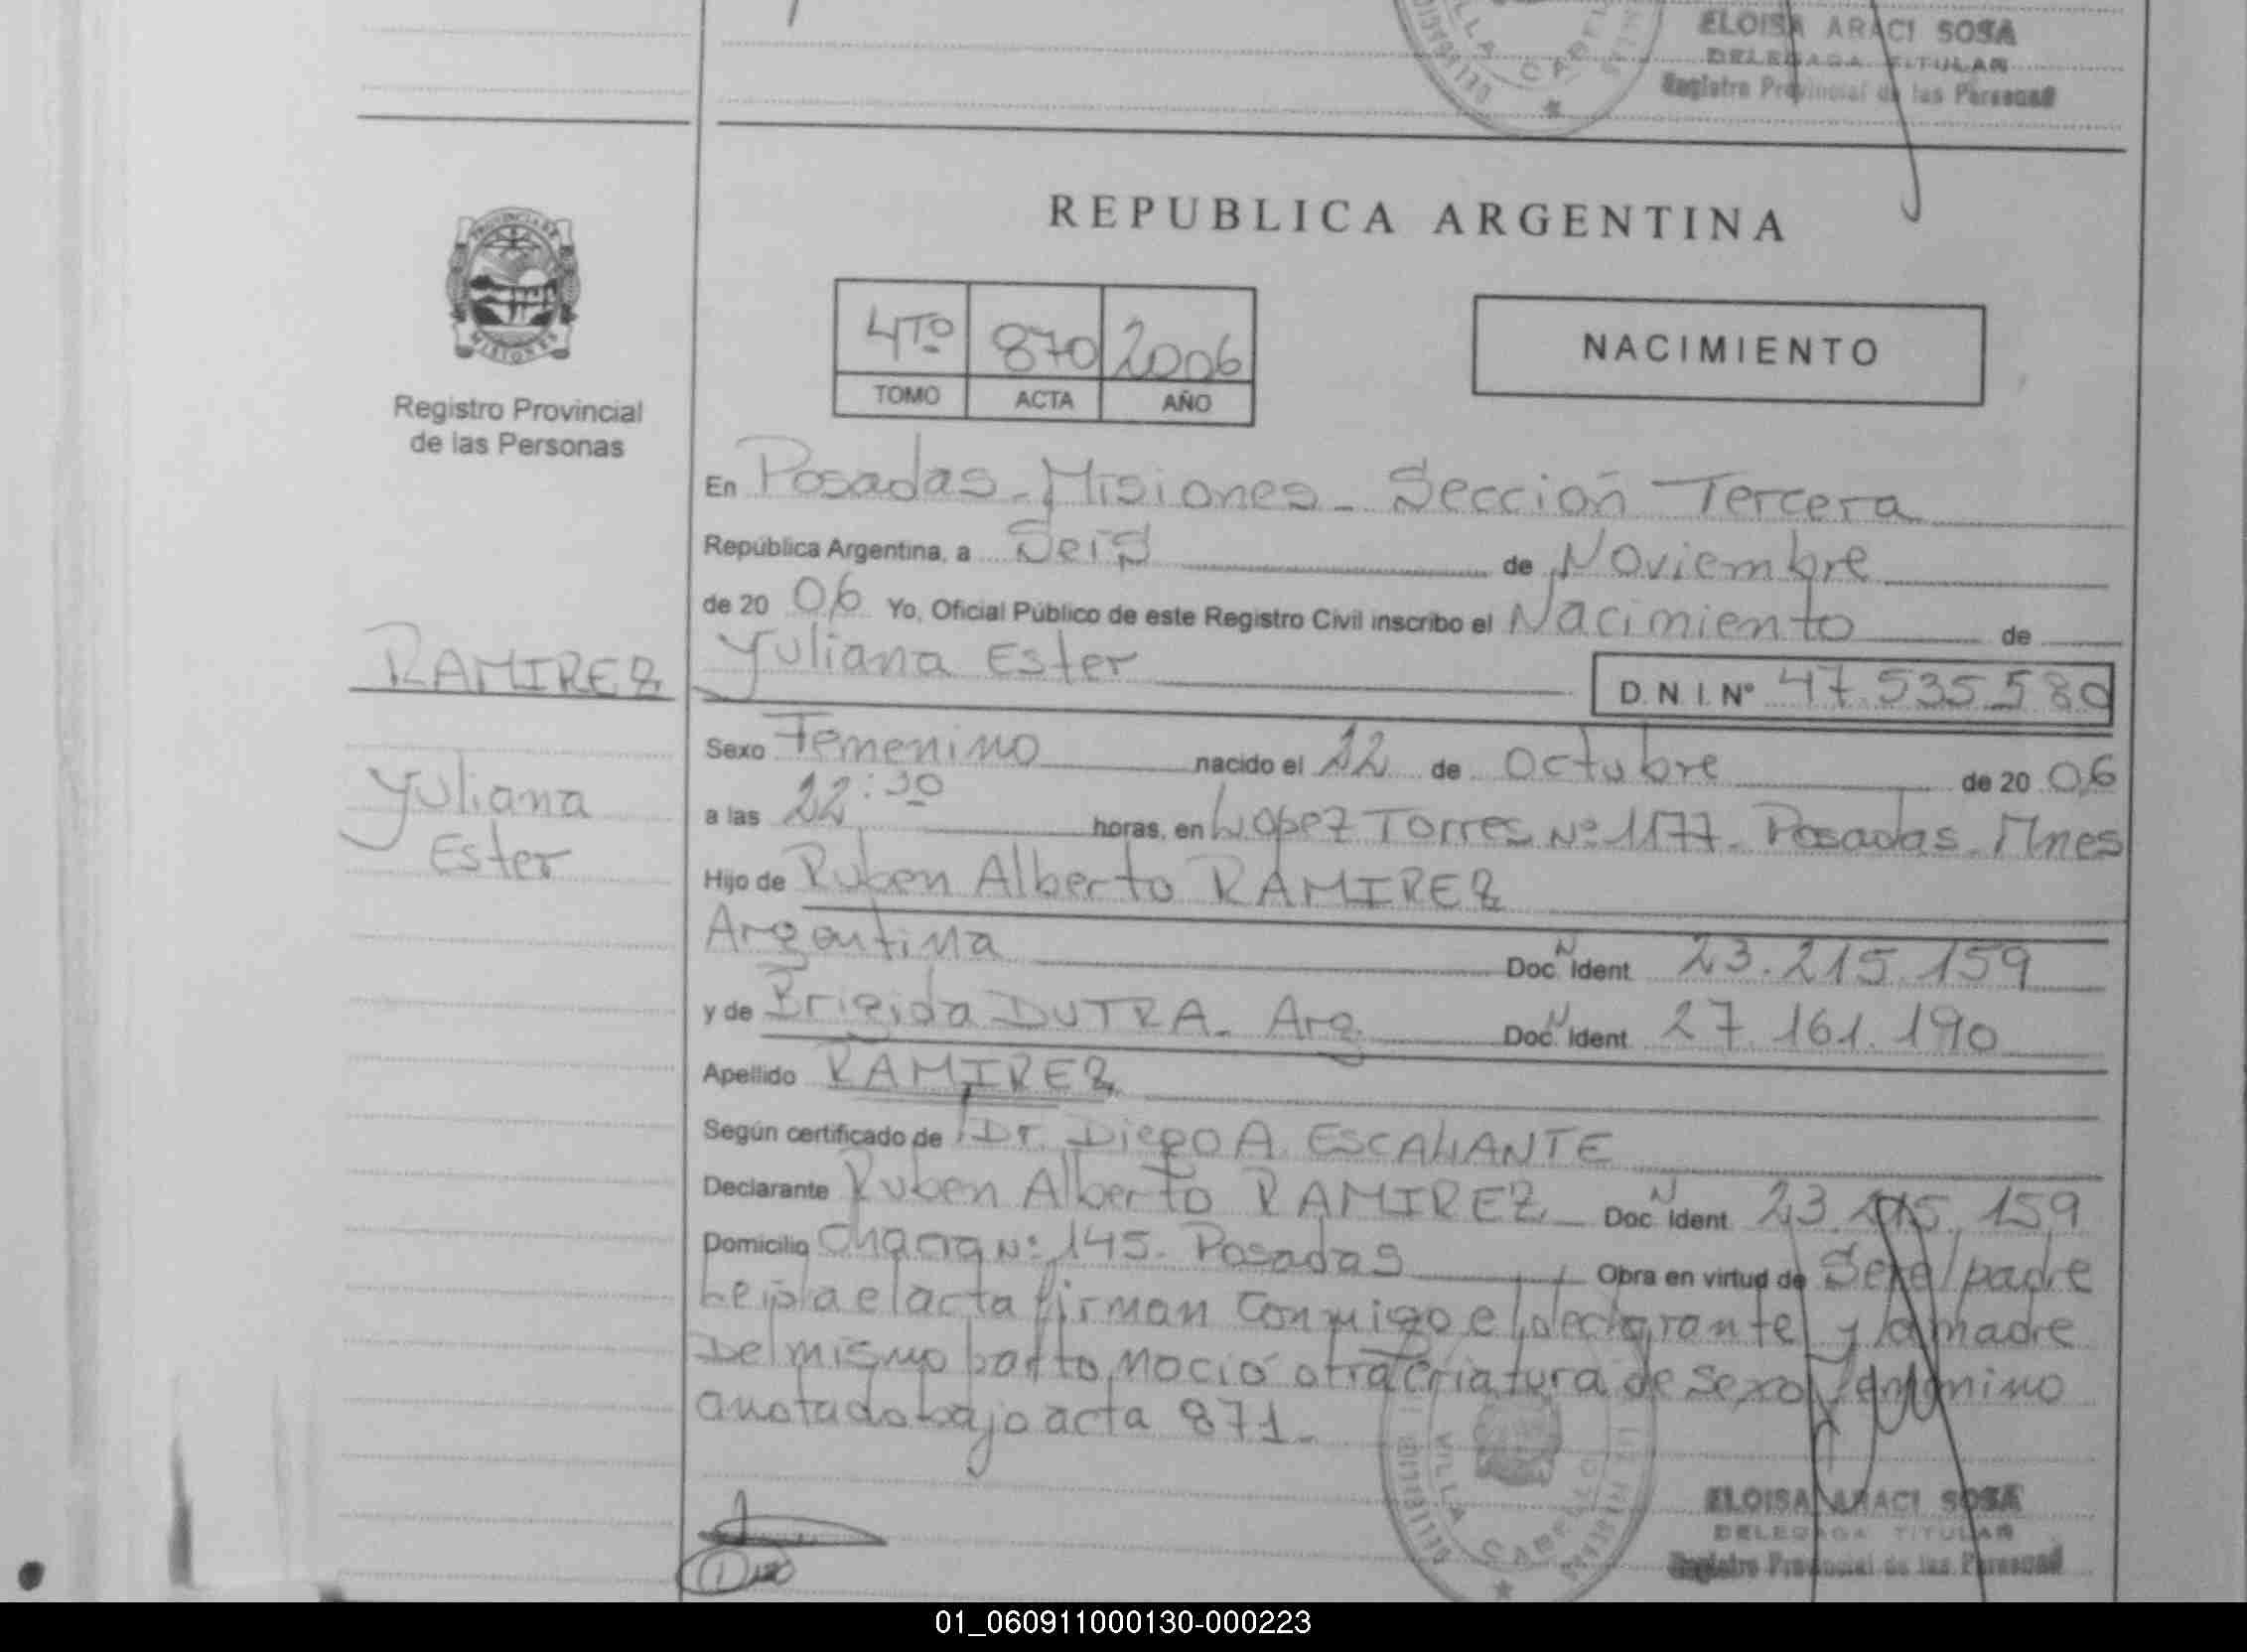 ELOISA ARACI SOSA
DELEGADA TITULAR
Registro Provincial de las Personas
REPUBLICA ARGENTINA
PROVINCIA DE
MISIONES
Registro Provincial
de las Personas
4TO 870 2006
TOMO ACTA AÑO
NACIMIENTO
En Posadas - Misiones - Sección Tercera
República Argentina, a Seis de Noviembre
de 20 06 Yo, Oficial Público de este Registro Civil inscribo el Nacimiento de
RAMIREZ
Yuliana Ester D.N.I. Nº 47.535.580
Yuliana
Ester
Sexo Femenino nacido el 22 de Octubre de 20 06
a las 22:30 horas, en Lopez Torres Nº 1177 - Posadas - Mnes
Hijo de Ruben Alberto RAMIREZ
Argentina Doc. N Ident 23.215.159
y de Brigida DUTRA - Arg Doc. N Ident 27.161.190
Apellido RAMIREZ
Según certificado de Dr. Diego A. ESCALANTE
Declarante Ruben Alberto RAMIREZ Doc N Ident. 23.215.159
Domicilio Chacra Nº 145. Posadas Obra en virtud de Ser el padre
Leida el acta firman conmigo el declarante y la madre
Del mismo parto nació otra criatura de sexo femenino
anotado bajo acta 871 -
VILLA CABELLO
ELOISA ARACI SOSA
DELEGADA TITULAR
Registro Provincial de las Personas
01_060911000130-000223